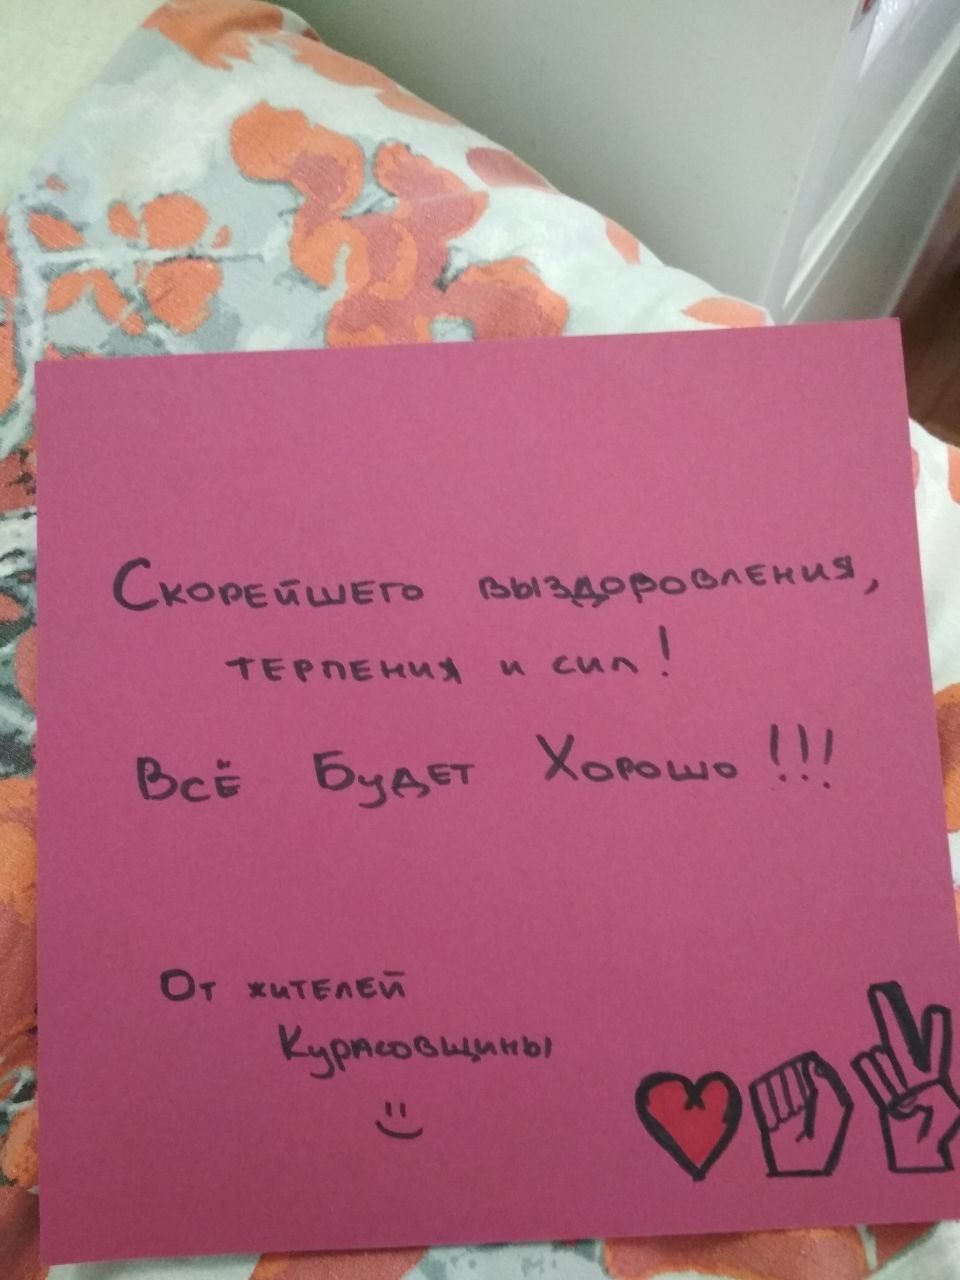 Скорейшего выздоровления,
терпения и сил!
Всё Будет Хорошо!!!
От жителей
Курасовщины